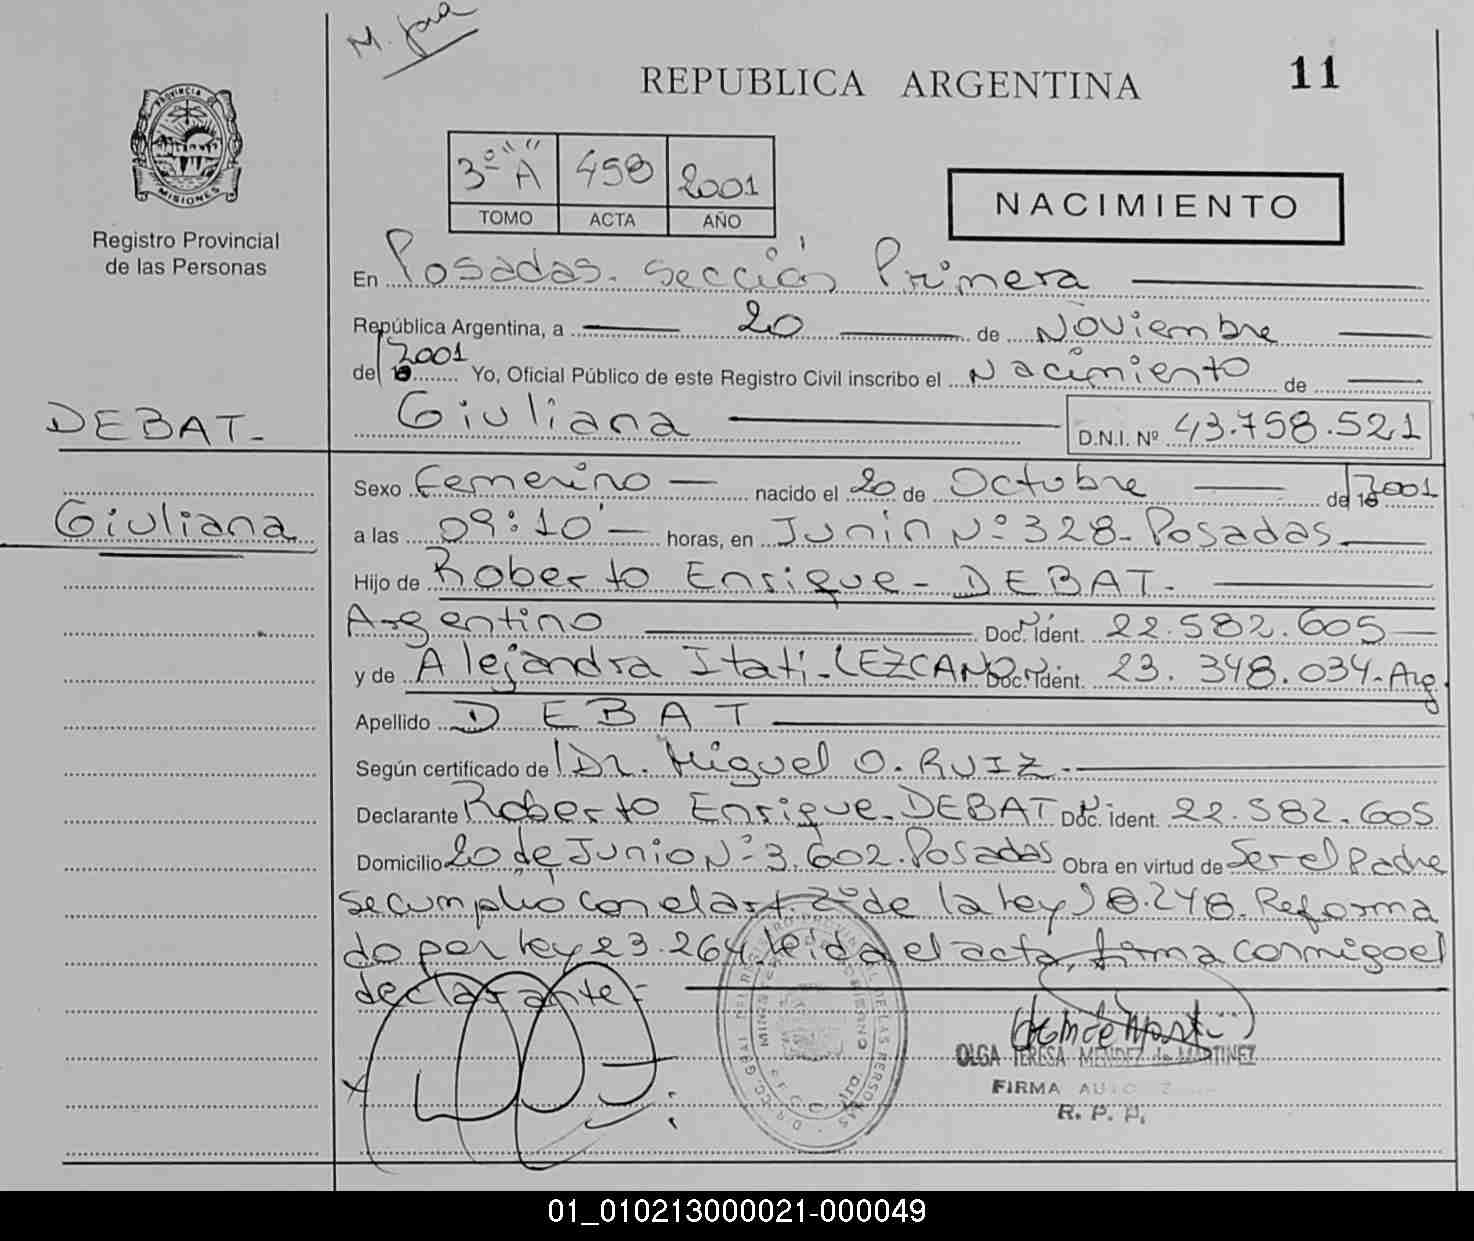 M. Jora
REPUBLICA ARGENTINA
11
PROVINCIA DE
MISIONES
Registro Provincial
de las Personas
3º "A" 458 2001
TOMO ACTA AÑO
NACIMIENTO
En Posadas. Sección Primera
República Argentina, a 20 de Noviembre
de 2001 Yo, Oficial Público de este Registro Civil inscribo el Nacimiento de
DEBAT.
Giuliana D.N.I. Nº 43.758.521
Sexo Femenino nacido el 20 de Octubre de 2001
Giuliana
a las 09:10 horas, en Junin Nº 328. Posadas
Hijo de Roberto Enrique - DEBAT.
Argentino Doc. Ident. 22.582.605
y de Alejandra Itati - LEZCANO Doc. Ident. 23.348.034. Arg.
Apellido DEBAT
Según certificado de Dr. Miguel O. RUIZ.
Declarante Roberto Enrique. DEBAT Doc. Ident. 22.582.605
Domicilio 20 de Junio Nº 3.602. Posadas Obra en virtud de Ser el Padre
se cumplió con el art. 2º de la ley 18.248. Reforma
do por ley 23.264. leída el acta, firma conmigo el
declarante:
OLGA TERESA MENDEZ de MARTINEZ
FIRMA
R. P. P.
01_010213000021-000049